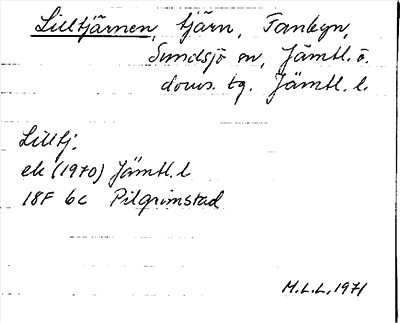 Lilltjärnen, tjärn, Fanbyn,
Sundsjö sn, Jämtl. ö.
doms. tg. Jämtl. l.
Lilltj.
ek (1970) Jämtl. l
18F 6c Pilgrimstad
M.L.L. 1971